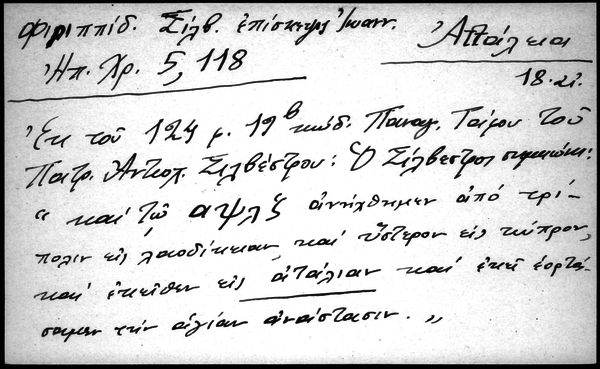 Φιλιππίδ. Σίλβ. ἐπίσκεψις Ἰωανν.
Ἠπ. Χρ. 5, 118
Ἀττάλεια
18. αἰ.
Ἐκ τοῦ 124 μ. 19β κώδ. Παναγ. Τάφου τοῦ
Πατρ. Ἀντιοχ. Σιλβέστρου: Ὁ Σίλβεστρος σημειώνει:
" καί τῷ αψλζ ἀνήλθημεν ἀπό τρί-
πολιν εἰς λαοδίκειαν, καί ὕστερον εἰς κύπρον,
καί ἐκεῖθεν εἰς ἀτάλιαν καί ἐκεῖ ἑορτά-
σαμεν τήν ἁγίαν ἀνάστασιν. "